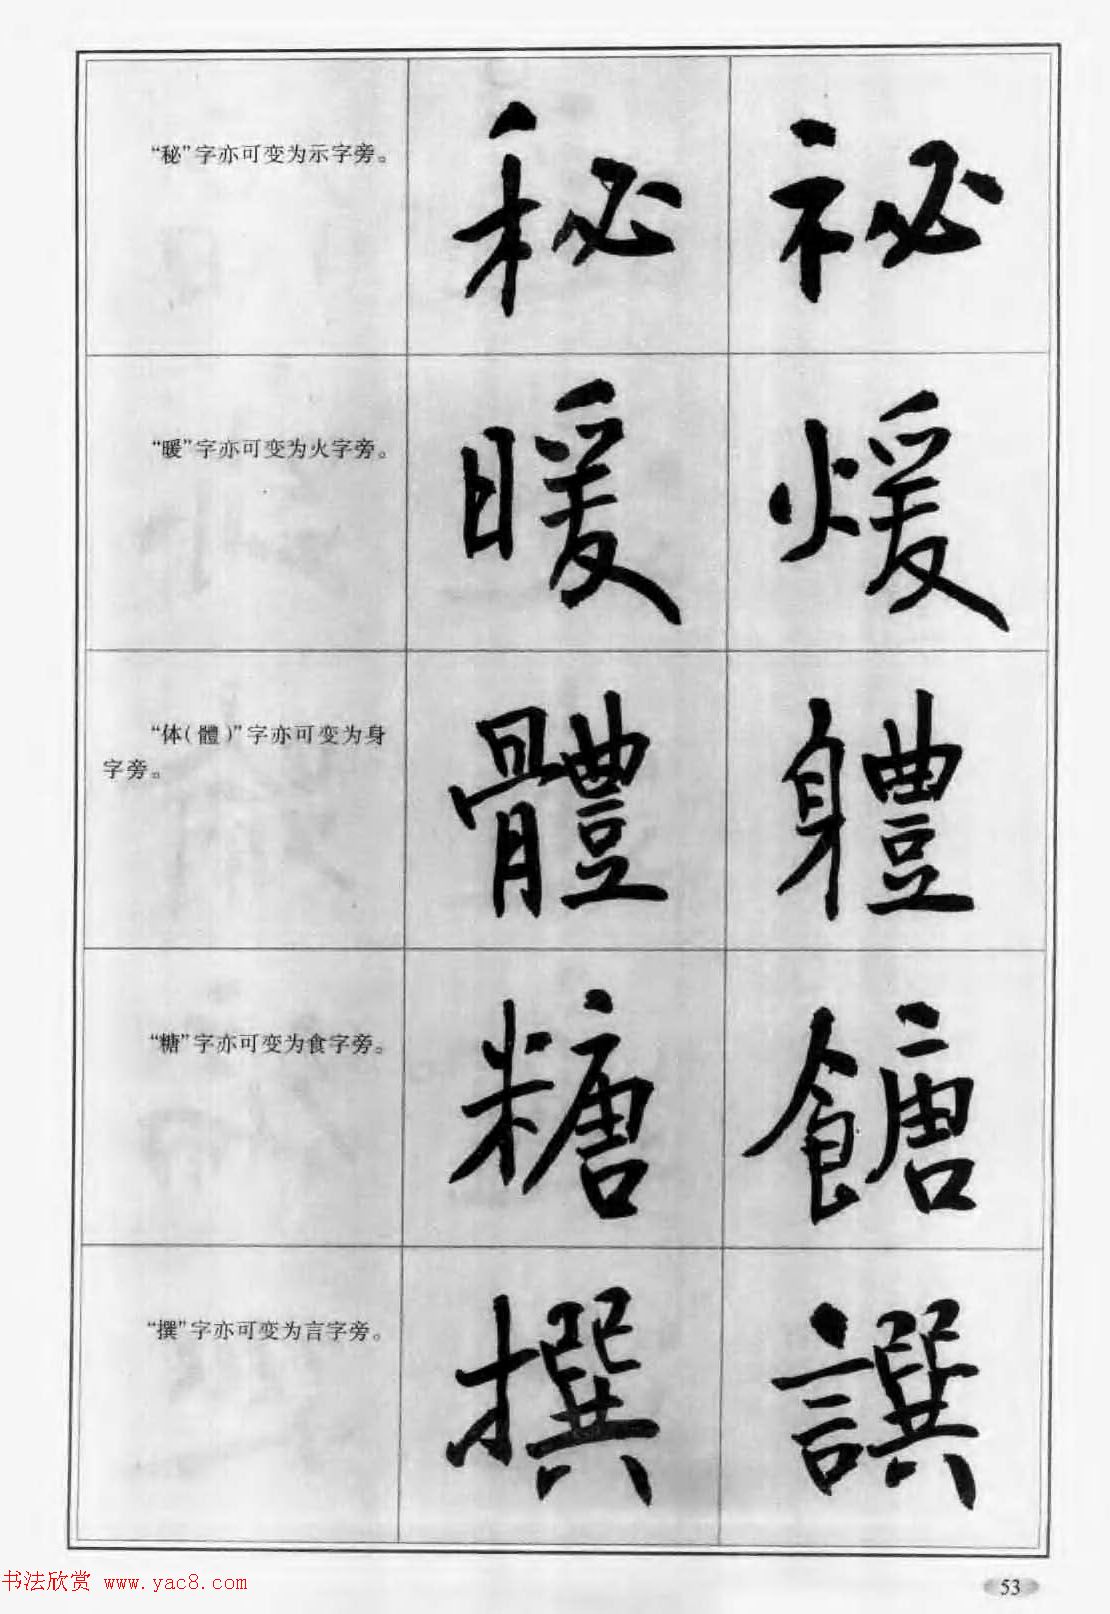 “秘”字亦可变为示字旁。
秘 祕
“暖”字亦可变为火字旁。
暖 煖
“体(體)”字亦可变为身
字旁。
體 軆
“糖”字亦可变为食字旁。
糖 餹
“撰”字亦可变为言字旁。
撰 譔
书法欣赏 www.yac8.com
53